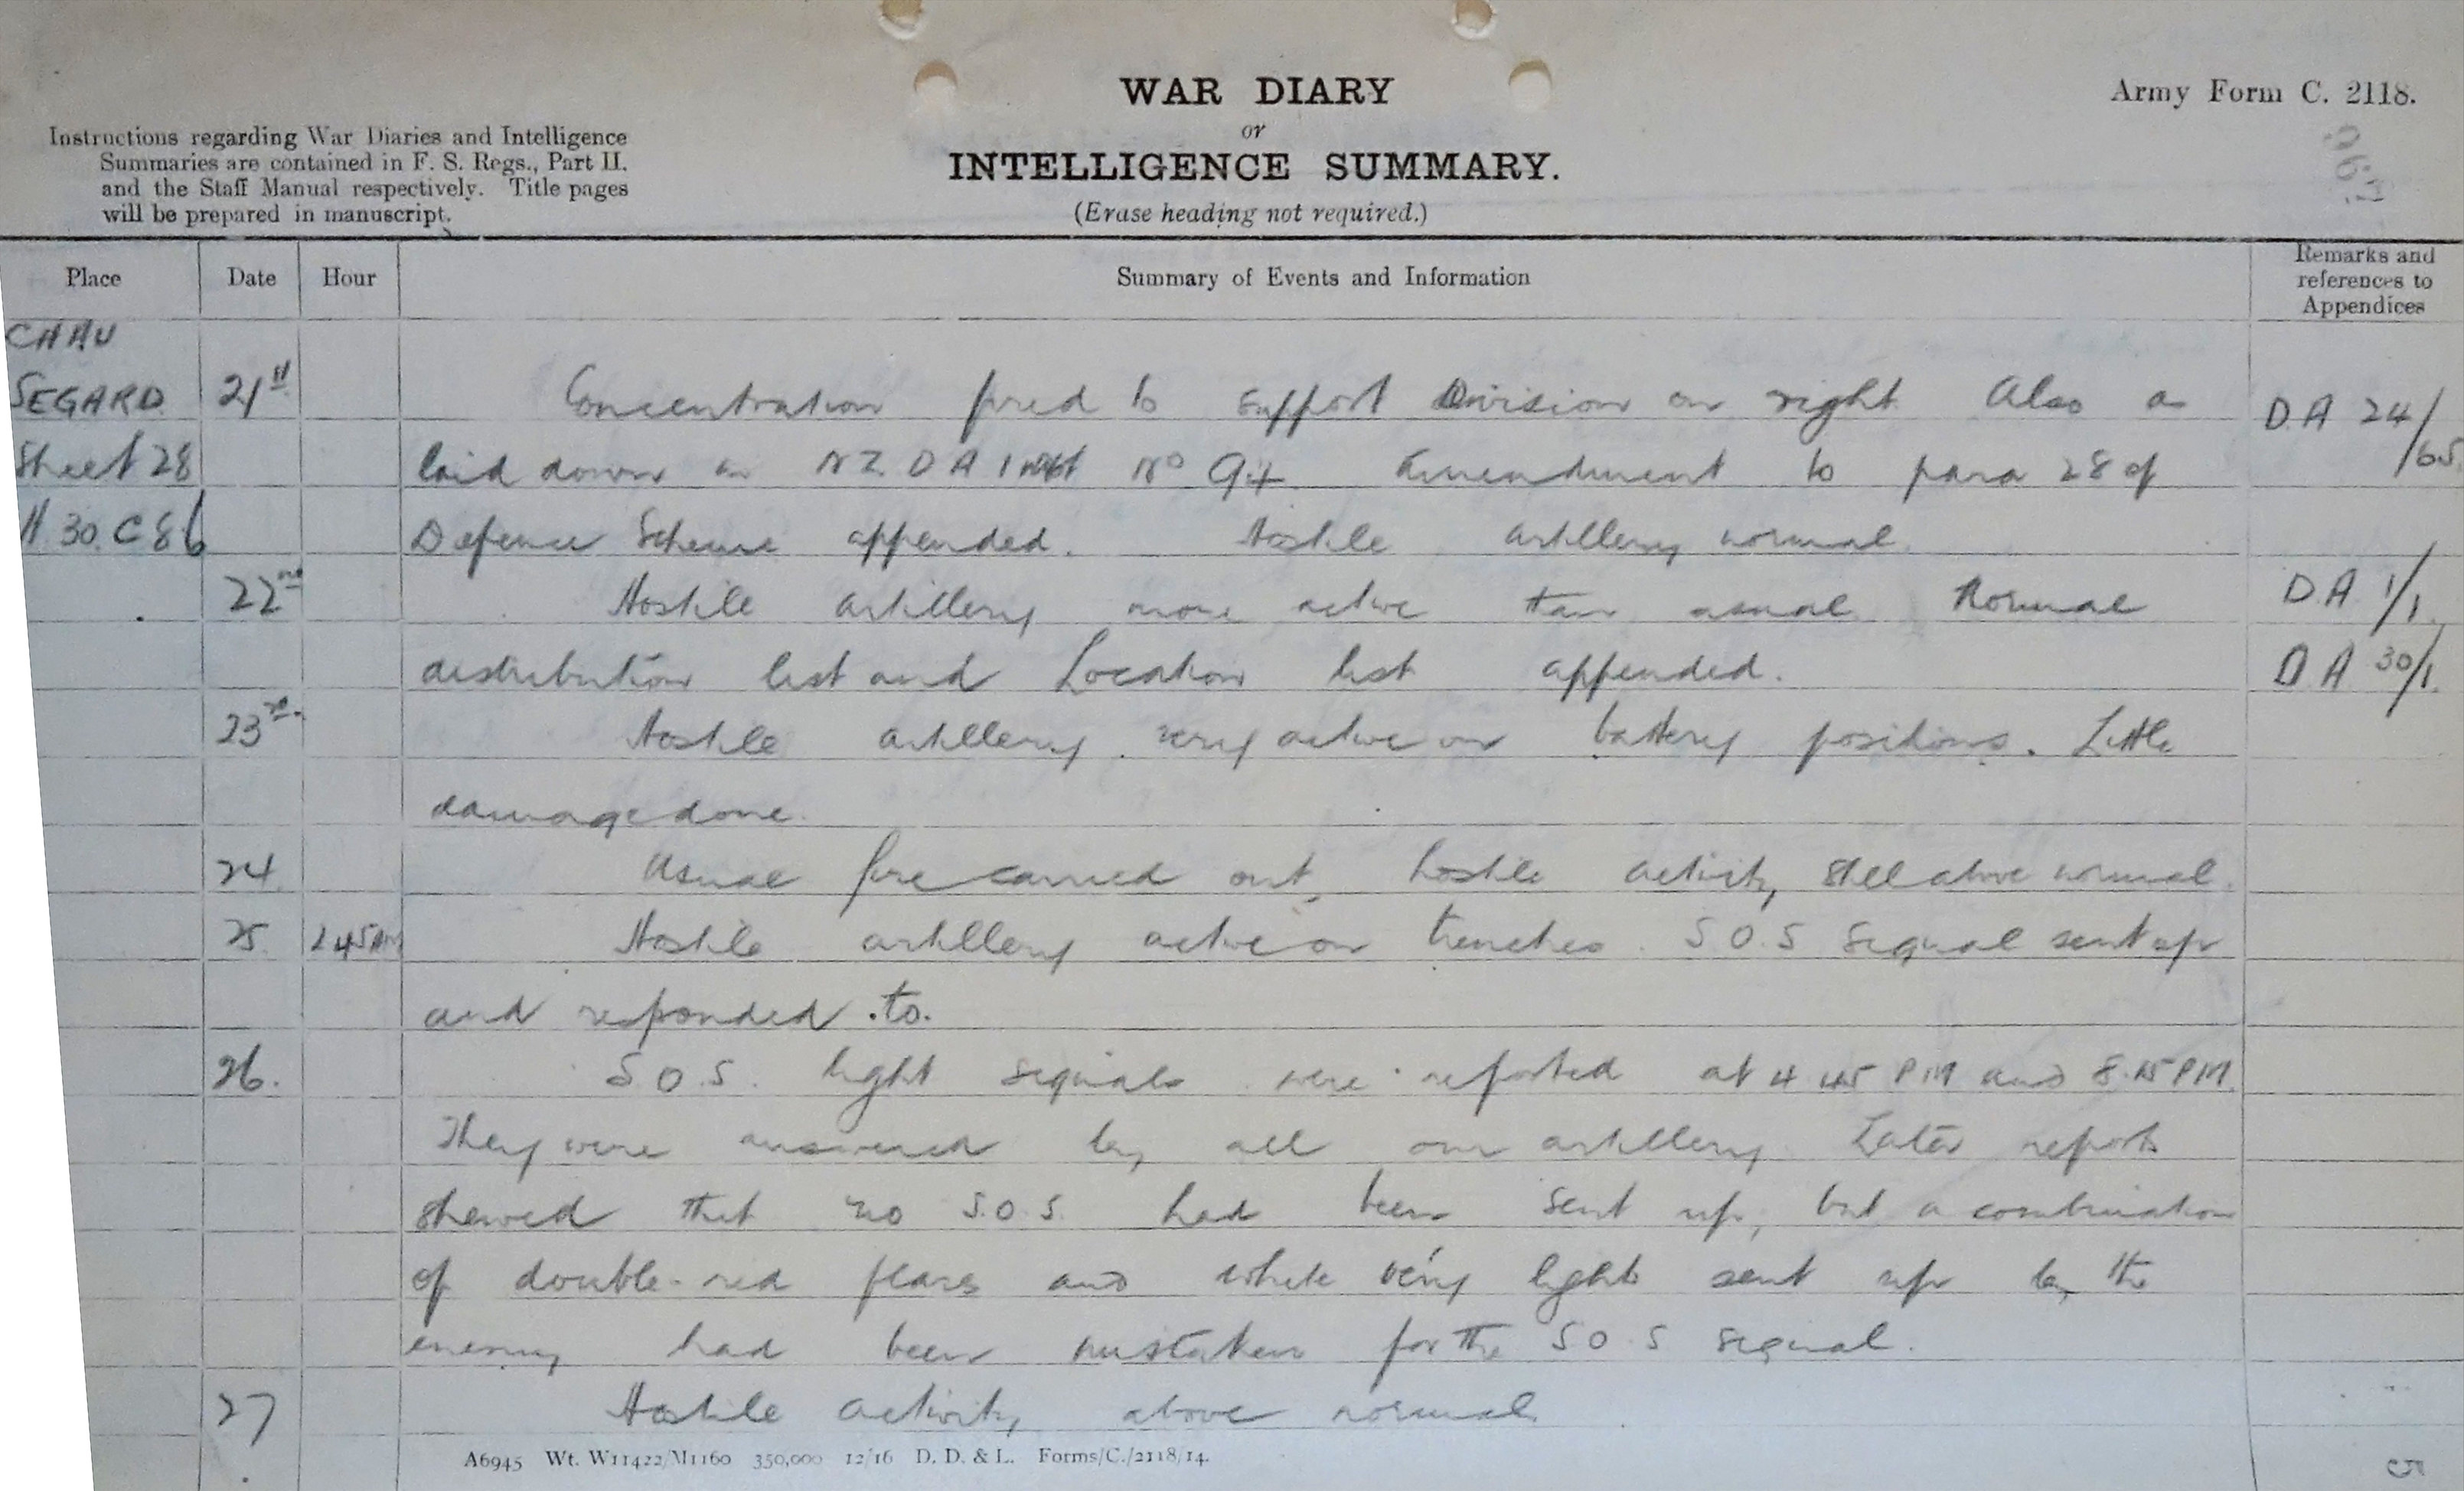 WAR DIARY
or
INTELLIGENCE SUMMARY.
(Erase heading not required.)
Army Form C. 2118.
Instructions regarding War Diaries and Intelligence
Summaries are contained in F. S. Regs., Part II.
and the Staff Manual respectively. Title pages
will be prepared in manuscript.
Place Date Hour Summary of Events and Information Remarks and references to Appendices
CHAU
SEGARD 21st Concentration fired to support Division on right. Also as D.A 24/65
Sheet 28 laid down in NZ.D A Inst No 94 Amendment to para 28 of
H.30.C 8 6 Defence Scheme appended. Hostile artillery normal.
22nd Hostile artillery more active than usual Normal D.A 1/1
distribution list and Location list appended. D A 30/1.
23rd Hostile artillery very active on battery positions. Little
damage done.
24 Usual fire carried out, hostile activity still above normal.
25. Hostile artillery active on trenches. S.O.S signal sent up
and responded to.
26. S.O.S. light signals were reported at 4.45 PM and 8.15 PM.
They were answered by all our artillery. Later reports
shewed that no S.O.S. had been sent up, but a combination
of double-red flares and white véry lights sent up by the
enemy had been mistaken for the S O S signal.
27 Hostile activity above normal.
A6945 Wt. W11422/M1160 350,000 12/16 D. D. & L. Forms/C./2118/14.